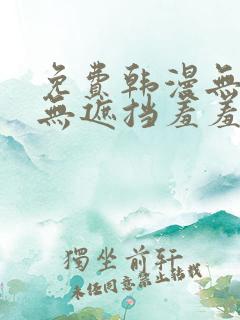 免費韩漫無
無遮挡羞羞
獨坐前轩
未经同意禁止转载